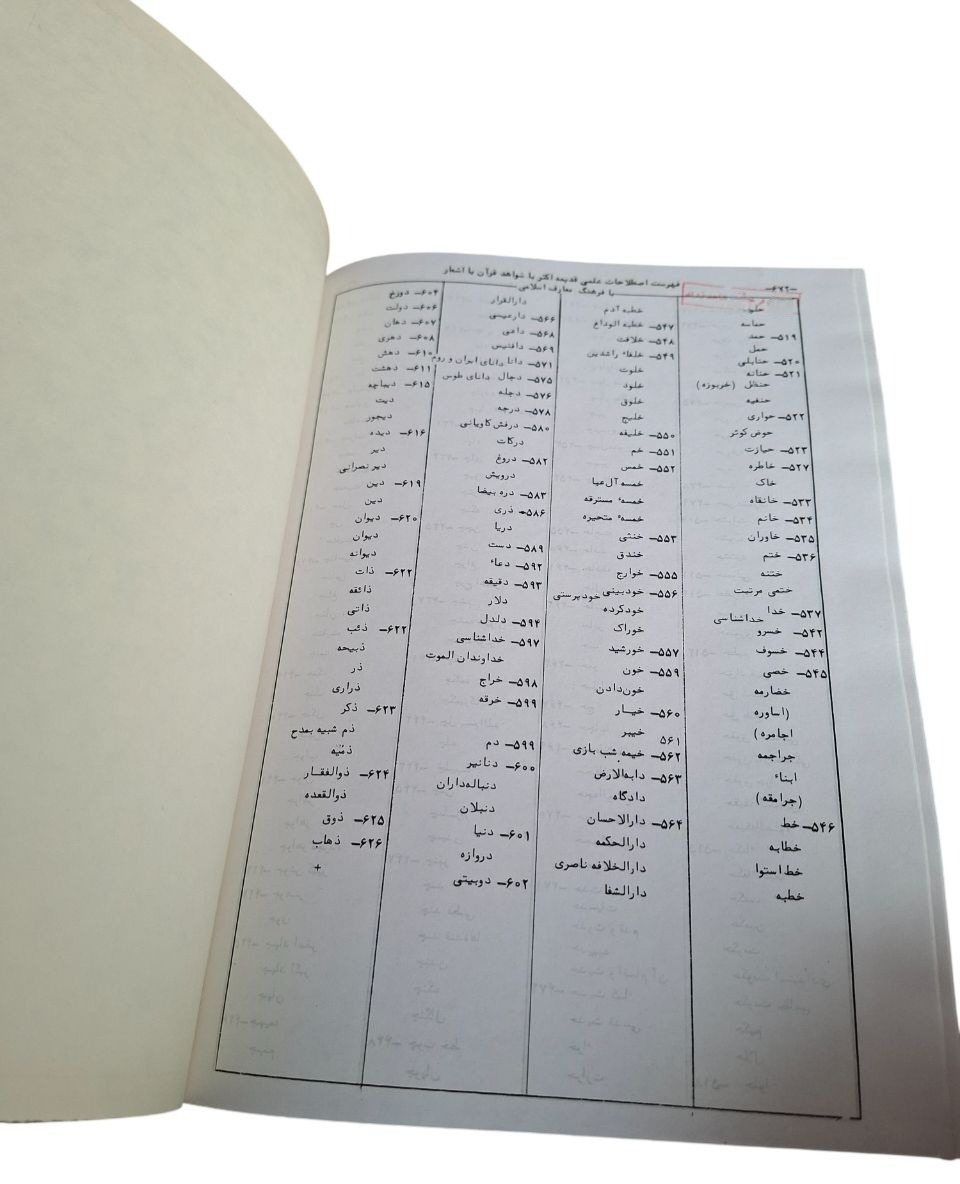 -۶۷۲-
فهرست اصطلاحات علمی قدیمه اکثر با شواهد قرآن یا اشعار
یا فرهنگ معارف اسلامی
حماسه
۵۱۹- حمد
حمل
۵۲۰- حنابلی
۵۲۱- حنانه
حنظل (خربوزه)
حنفیه
۵۲۲- حواری
حوض کوثر
۵۲۳- حیازت
۵۲۷- خاطره
خاک
۵۳۳- خانقاه
۵۳۴- خانم
۵۳۵- خاوران
۵۳۶- ختم
ختنه
ختمی مرتبت
۵۳۷- خدا خداشناسی
۵۴۲- خسرو
۵۴۴- خسوف
۵۴۵- خصی
خضارمه
(اساوره
اجامره)
جراجمه
ابناء
(جرامقه)
۵۴۶- خط
خطابه
خط استوا
خطبه
خطبه آدم
۵۴۷- خطبه الوداع
۵۴۸- خلافت
۵۴۹- خلفاء راشدین
خلوت
خلود
خلوق
خلیج
۵۵۰- خلیفه
۵۵۱- خم
۵۵۲- خمس
خمسه آل عبا
خمسهٔ مسترقه
خمسهٔ متحیره
۵۵۳- خنثی
خندق
۵۵۵- خوارج
۵۵۶- خودبینی خودپرستی
خودکرده
خوراک
۵۵۷- خورشید
۵۵۹- خون
خون‌دادن
۵۶۰- خیار
۵۶۱ خیبر
۵۶۲- خیمه شب بازی
۵۶۳- دابه‌الارض
دادگاه
۵۶۴- دارالاحسان
دارالحکمه
دارالخلافه ناصری
دارالشفا
دارالقرار
۵۶۶- دارعیسی
۵۶۸- داعی
۵۶۹- دافنیس
۵۷۱- دانا دانای ایران و روم
۵۷۵- دجال دانای طوس
۵۷۶- دجله
۵۷۸- درجه
۵۸۰- درفش کاویانی
درکات
۵۸۲- دروغ
درویش
۵۸۳- دره بیضا
۵۸۶- ذری
دریا
۵۸۹- دست
۵۹۲- دعاء
۵۹۳- دقیقه
دلار
۵۹۴- دلدل
۵۹۷- خداشناسی
خداوندان الموت
۵۹۸- خراج
۵۹۹- خرقه
۵۹۹- دم
۶۰۰- دنانیر
دنباله‌داران
دنبلان
۶۰۱- دنیا
دروازه
۶۰۲- دوبیتی
۶۰۴- دوزخ
۶۰۶- دولت
۶۰۷- دهان
۶۰۸- دهری
۶۱۰- دهش
۶۱۱- دهشت
۶۱۵- دیباچه
دیت
دیجور
۶۱۶- دیده
دیر
دیر نصرانی
۶۱۹- دین
دین
۶۲۰- دیوان
دیوان
دیوانه
۶۲۲- ذات
ذائقه
ذاتی
۶۲۲- ذئب
ذبیحه
ذر
ذراری
۶۲۳- ذکر
ذم شبیه بمدح
ذمّیّه
۶۲۴- ذوالفقار
ذوالقعده
۶۲۵- ذوق
۶۲۶- ذهاب
+